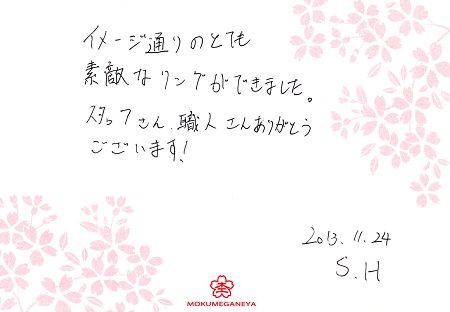 イメージ通りのとても
素敵なリングができました。
スタッフさん、職人さんありがとう
ございます!
2013.11.24
S.H
MOKUMEGANEYA